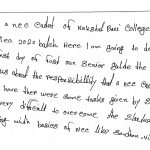 a ncc cadet of Naxshal Bari College
2020 batch. Here I am going to de
irst day of fast our Senior guide the
us about the responsibility that a ncc Ca
have then were some tasks given by S
very difficult to overcome the Standa
ng with basics of ncc like Savdhan, vi